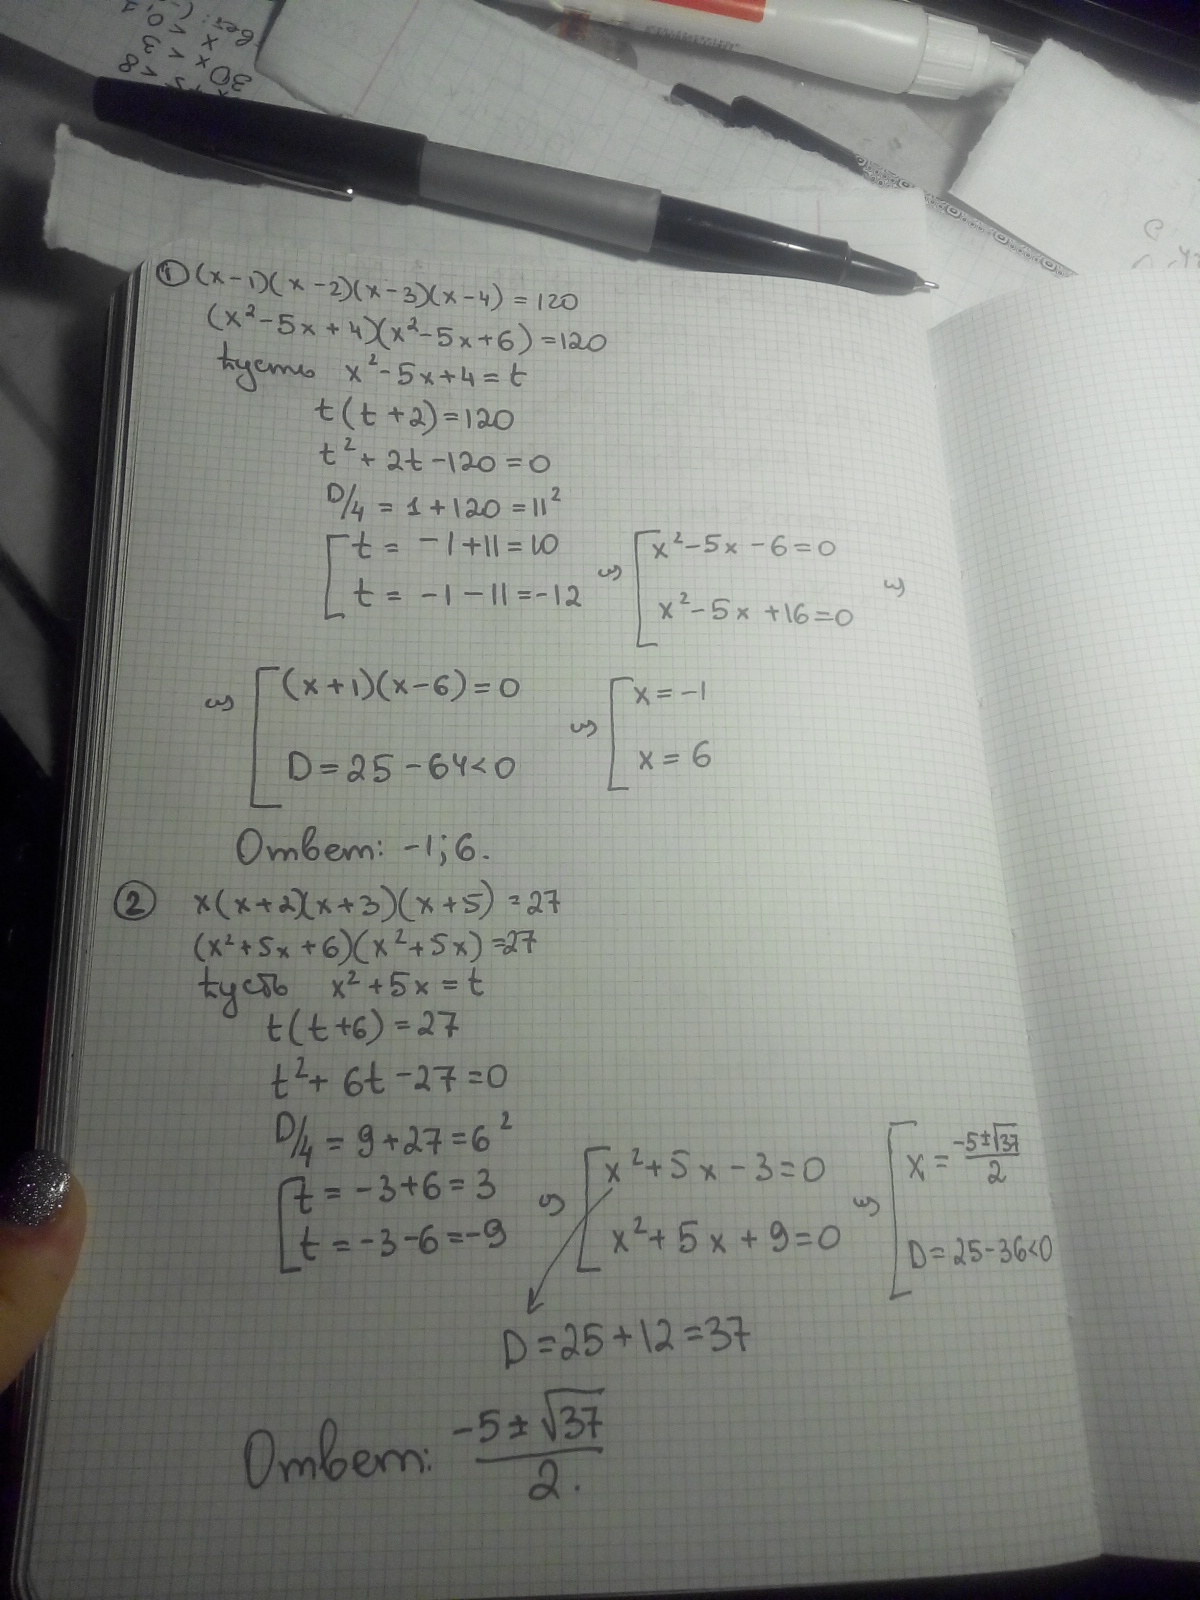 ① (x-1)(x-2)(x-3)(x-4) = 120
(x²-5x+4)(x²-5x+6) = 120
Пусть x²-5x+4 = t
t(t+2) = 120
t²+2t-120 = 0
D/4 = 1+120 = 11²
[ t = -1+11 = 10
t = -1-11 = -12
⇔ [ x²-5x-6 = 0
x²-5x+16 = 0 ⇔
⇔ [ (x+1)(x-6) = 0
D = 25-64 < 0
⇔ [ x = -1
x = 6
Ответ: -1; 6.
② x(x+2)(x+3)(x+5) = 27
(x²+5x+6)(x²+5x) = 27
Пусть x²+5x = t
t(t+6) = 27
t²+6t-27 = 0
D/4 = 9+27 = 6²
[ t = -3+6 = 3
t = -3-6 = -9
⇔ [ x²+5x-3 = 0
x²+5x+9 = 0
⇔ [ x = (-5±√37)/2
D = 25-36 < 0
D = 25+12 = 37
Ответ: (-5±√37)/2.